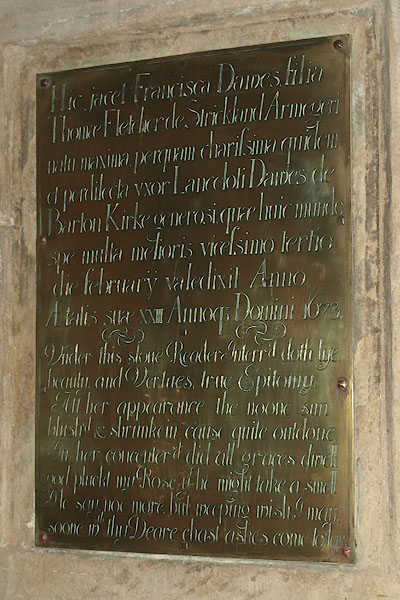 Hic jacet Francisca Dawes filia
Thomæ Fletcher de Strickland Armegeri
natu maxima perquam charissima quidem
et perdilecta vxor Lanceloti Dawes de
Barton Kirke generosi quæ huic mundo
spe multa melioris vicessimo tertio
die februarÿ valedixit Anno
Ætatis suæ xxIII Annoq; Domini 1673.
Vnder this stone Reader Interr'd doth lye,
beauty, and Vertues, true Epitomy,
Att her appearance the noone sun
blush'd & shrunk in cause quite outdone
In her concenter'd did all graces dwell
god pluckt my Rose yt he might take a smel
Ile say noe more, but weeping wish I may
soone wth thy Deare chast ashes come to lay